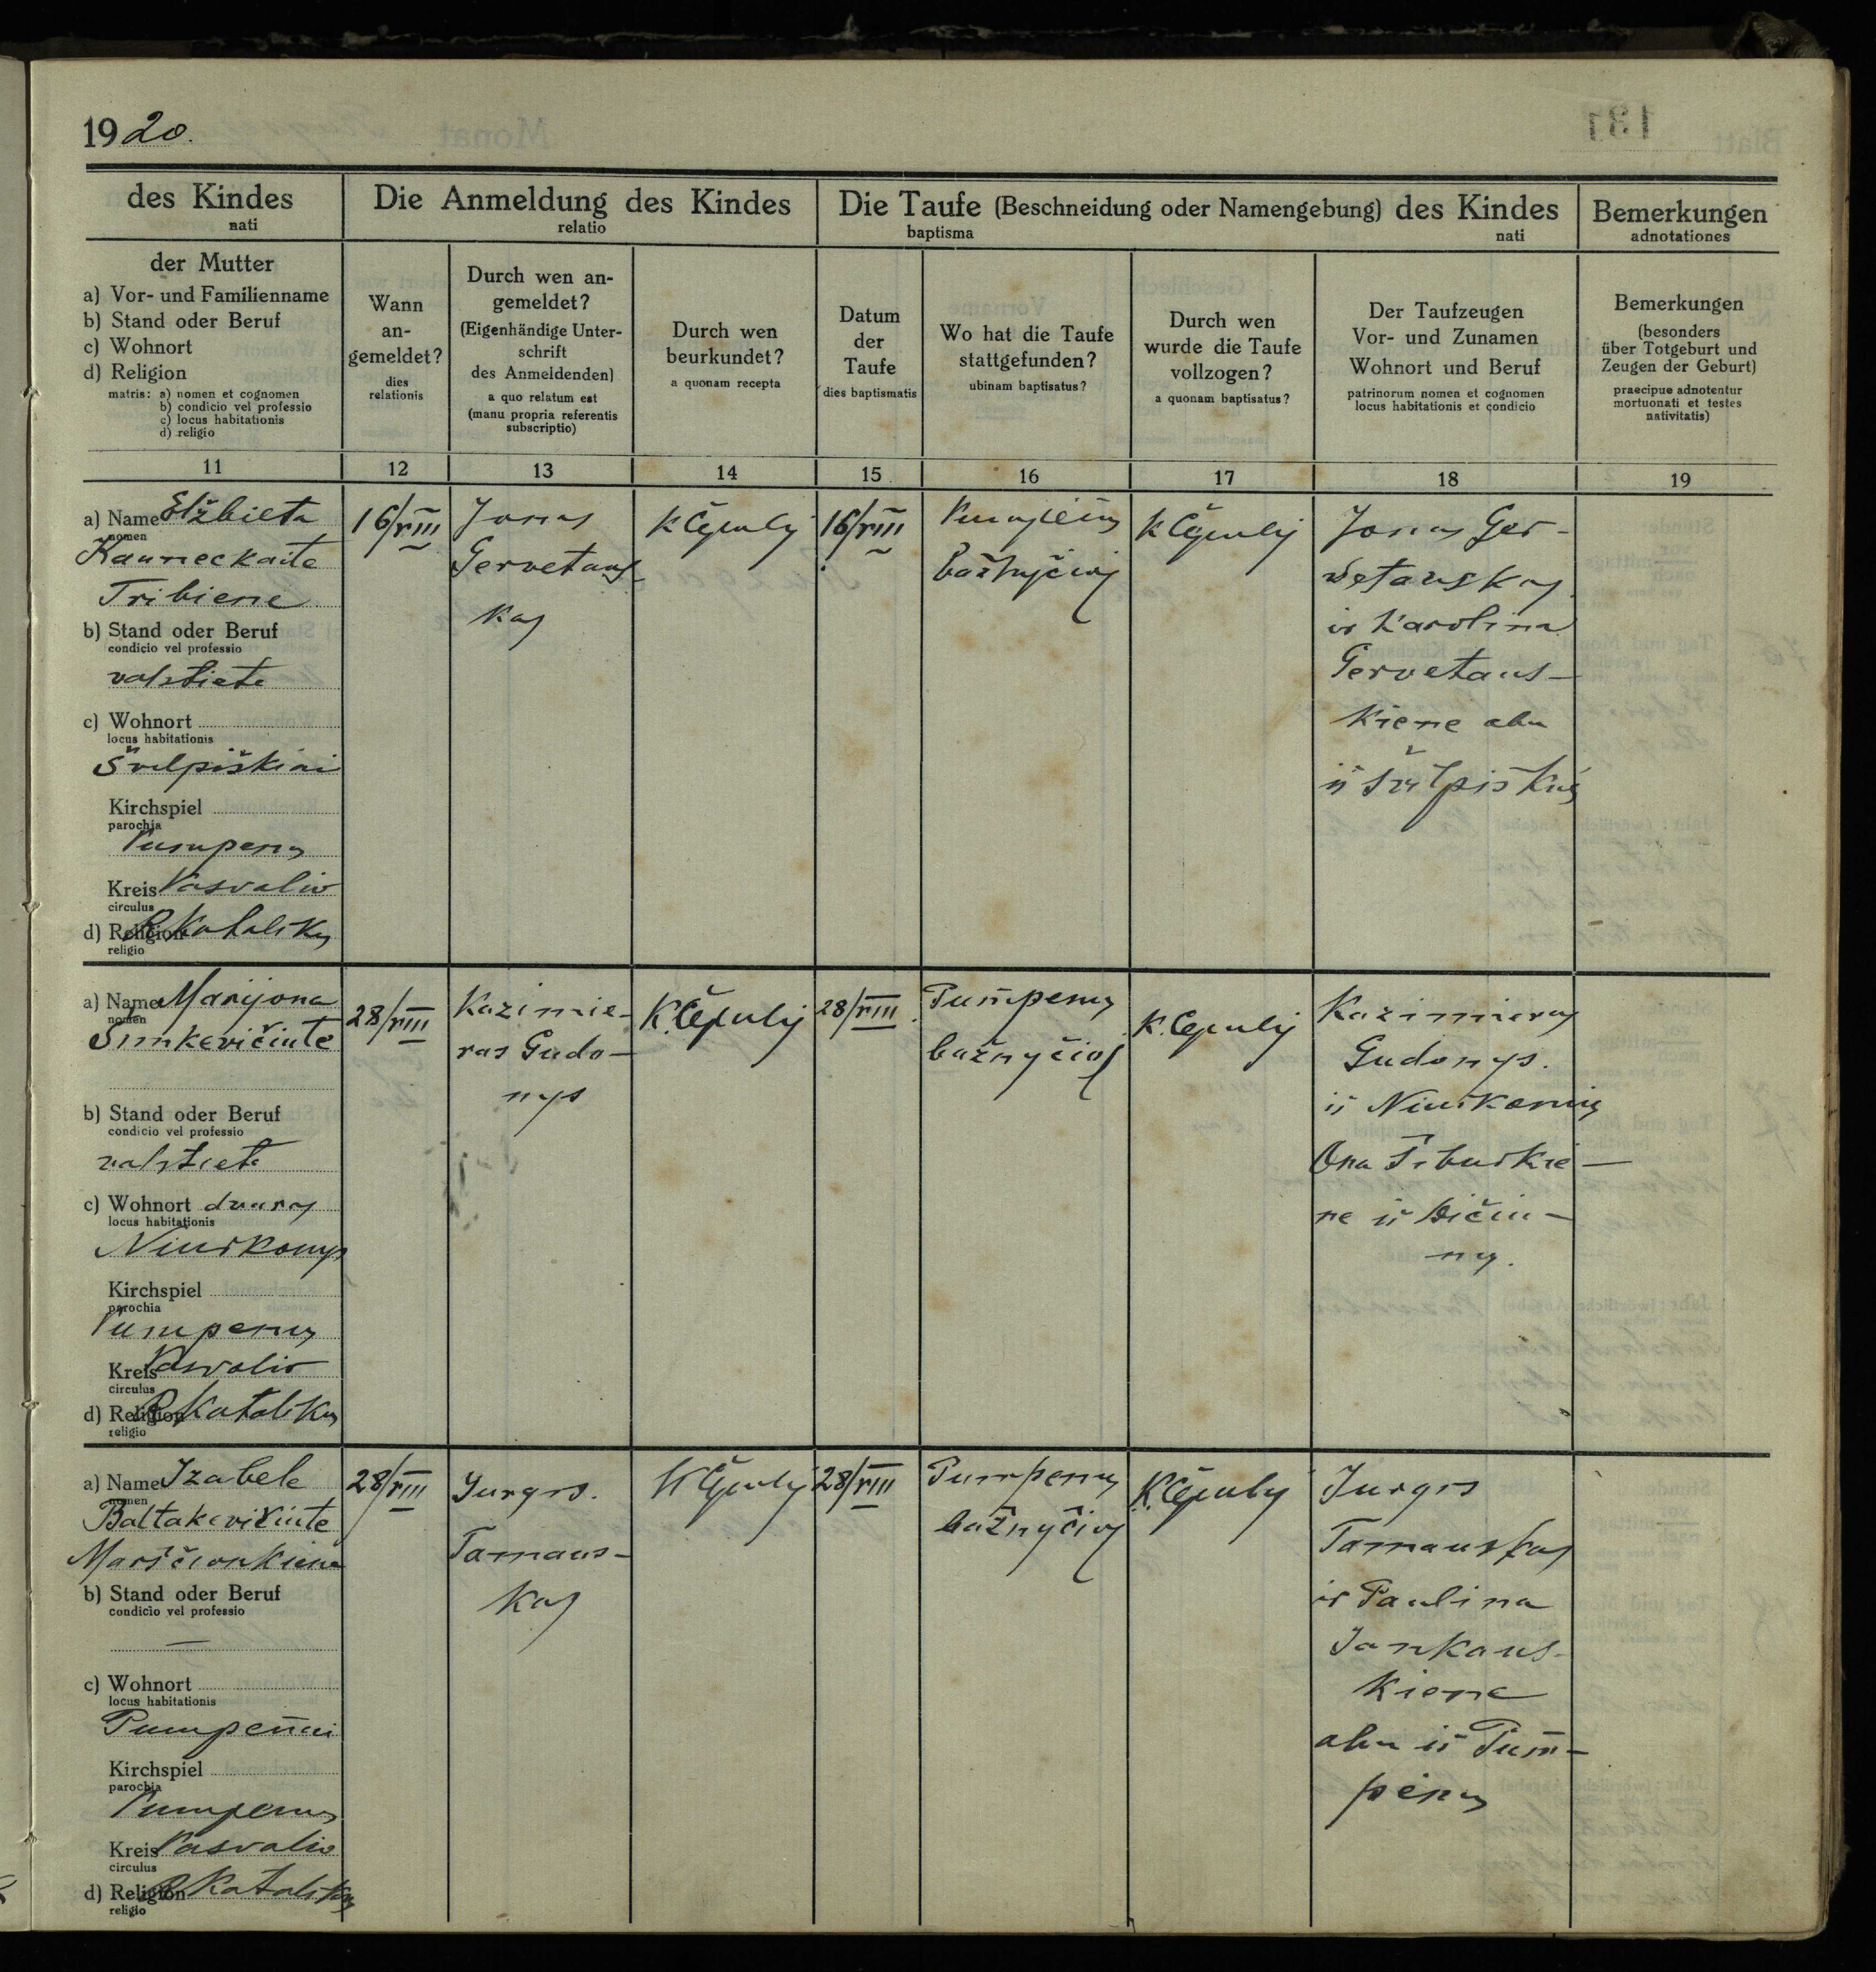 1920.
des Kindes
nati
Die Anmeldung des Kindes
relatio
Die Taufe (Beschneidung oder Namengebung) des Kindes
baptisma nati
Bemerkungen
adnotationes
der Mutter
a) Vor- und Familienname
b) Stand oder Beruf
c) Wohnort
d) Religion
matris: a) nomen et cognomen
b) condicio vel professio
c) locus habitationis
d) religio
Wann
an-
gemeldet?
dies
relationis
Durch wen an-
gemeldet?
(Eigenhändige Unter-
schrift
des Anmeldenden)
a quo relatum est
(manu propria referentis
subscriptio)
Durch wen
beurkundet?
a quonam recepta
Datum
der
Taufe
dies baptismatis
Wo hat die Taufe
stattgefunden?
ubinam baptisatus?
Durch wen
wurde die Taufe
vollzogen?
a quonam baptisatus?
Der Taufzeugen
Vor- und Zunamen
Wohnort und Beruf
patrinorum nomen et cognomen
locus habitationis et condicio
Bemerkungen
(besonders
über Totgeburt und
Zeugen der Geburt)
praecipue adnotentur
mortuonati et testes
nativitatis)
11 12 13 14 15 16 17 18 19
a) Name Elžbieta
nomen
Kauneckaite
Tribiene
b) Stand oder Beruf
condicio vel professio
valstiete
c) Wohnort
locus habitationis
Švilpiškiai
Kirchspiel
parochia
Pumpenų
Kreis Pasvalio
circulus
d) Religion R Katalikų
religio
16/VIII
Jonas
Gervetaus-
kas
K Čepulis
16/VIII
Pumpėnų
bažnyčioj
K Čepulis
Jonas Ger-
vetauskas
ir Karolina
Gervetaus-
kiene abu
iš Švilpiškių
a) Name Marijona
nomen
Simkevičiute
b) Stand oder Beruf
condicio vel professio
valstiete
c) Wohnort dvaras
locus habitationis
Niurkonys
Kirchspiel
parochia
Pumpenų
Kreis Pasvalio
circulus
d) Religion R Katalikų
religio
28/VIII
Kazimie-
ras Gudo-
nys
K. Čepulis
28/VIII
Pumpenų
bažnyčioj
K. Čepulis
Kazimieras
Gudonys.
iš Niurkonių
Ona
ne iš
a) Name Izabele
nomen
Baltakevičiute
Marščionkiene
b) Stand oder Beruf
condicio vel professio
—
c) Wohnort
locus habitationis
Pumpenai
Kirchspiel
parochia
Pumpenų
Kreis Pasvalio
circulus
d) Religion R Katalikų
religio
28/VIII
Jurgis.
Tamaus-
kas
K Čepulis
28/VIII
Pumpenų
bažnyčioj
K. Čepulis
Jurgis
Tamauskas
ir Paulina
Jankaus-
kiene
abu iš Pum-
pėnų